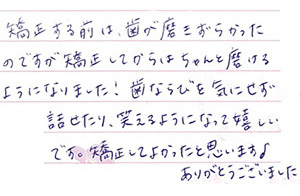 矯正する前は、歯が磨きずらかった
のですが矯正してからはちゃんと磨ける
ようになりました！歯ならびを気にせず
話せたり、笑えるようになって嬉しい
です。矯正してよかったと思います♪
ありがとうございました